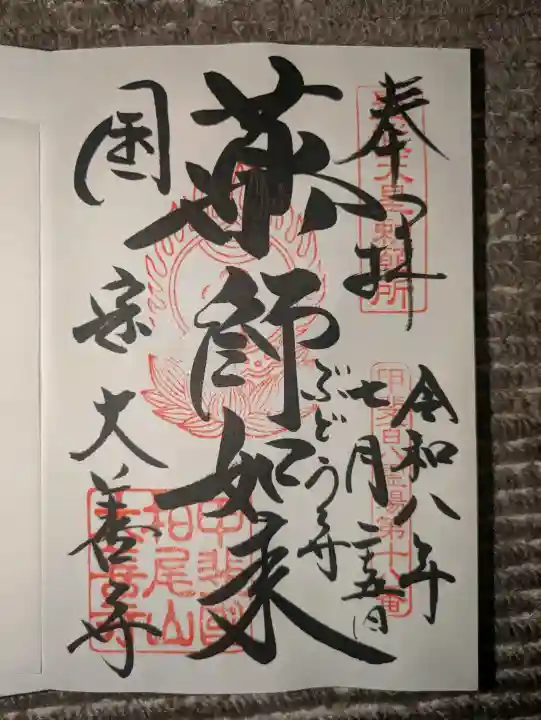 奉拝
天皇勅願所
令和八年
七月二五日
甲斐百八霊場第十八番
ぶどう寺
薬師如来
国宝大善寺
甲斐國
柏尾山
大善寺